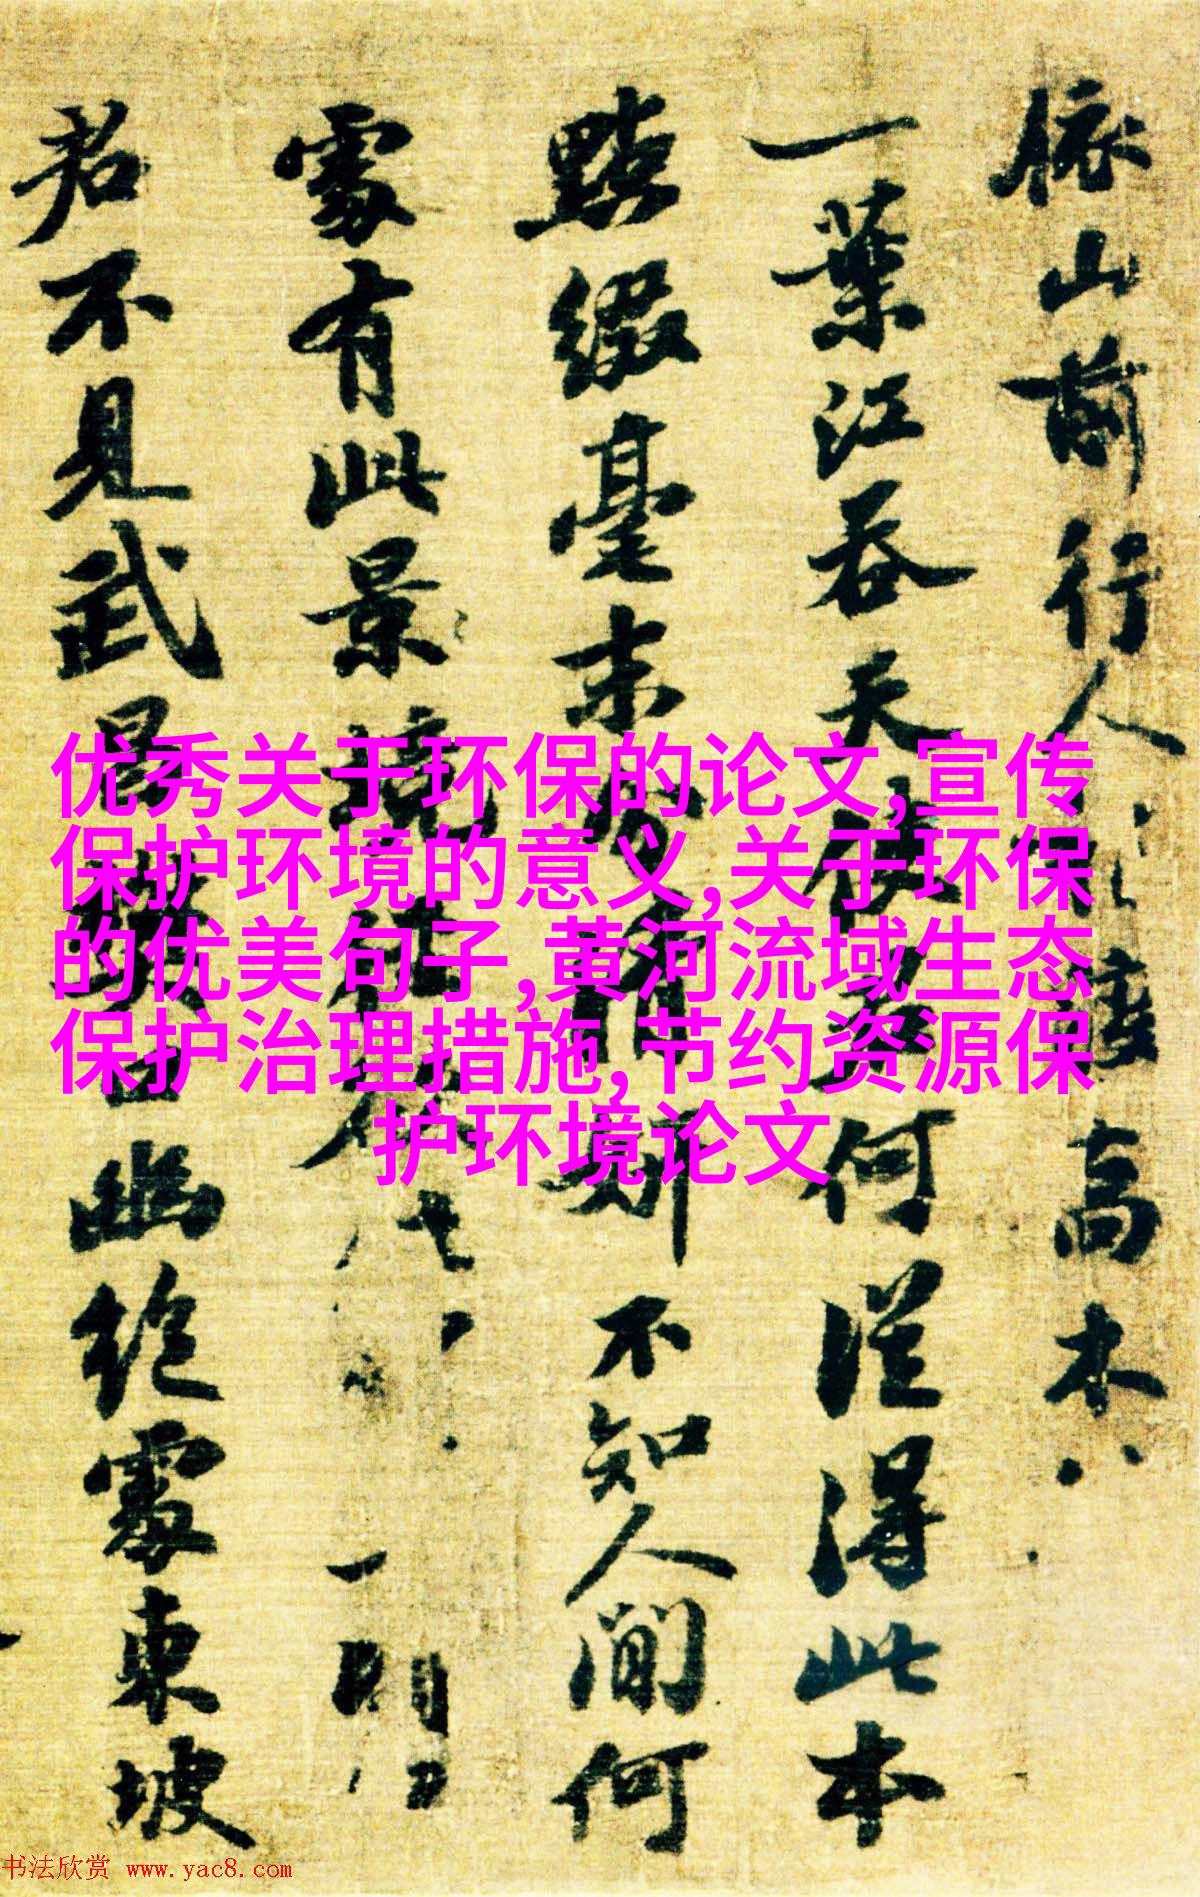 山前行人度高木
一葉江吞天使君何從得此本
點綴毫末分不知人間何
處有此景
君不見武昌樊口幽絕處東坡
优秀关于环保的论文,宣传
保护环境的意义,关于环保
的优美句子,黄河流域生态
保护治理措施,节约资源保
护环境论文
书法欣赏 www.yac8.com